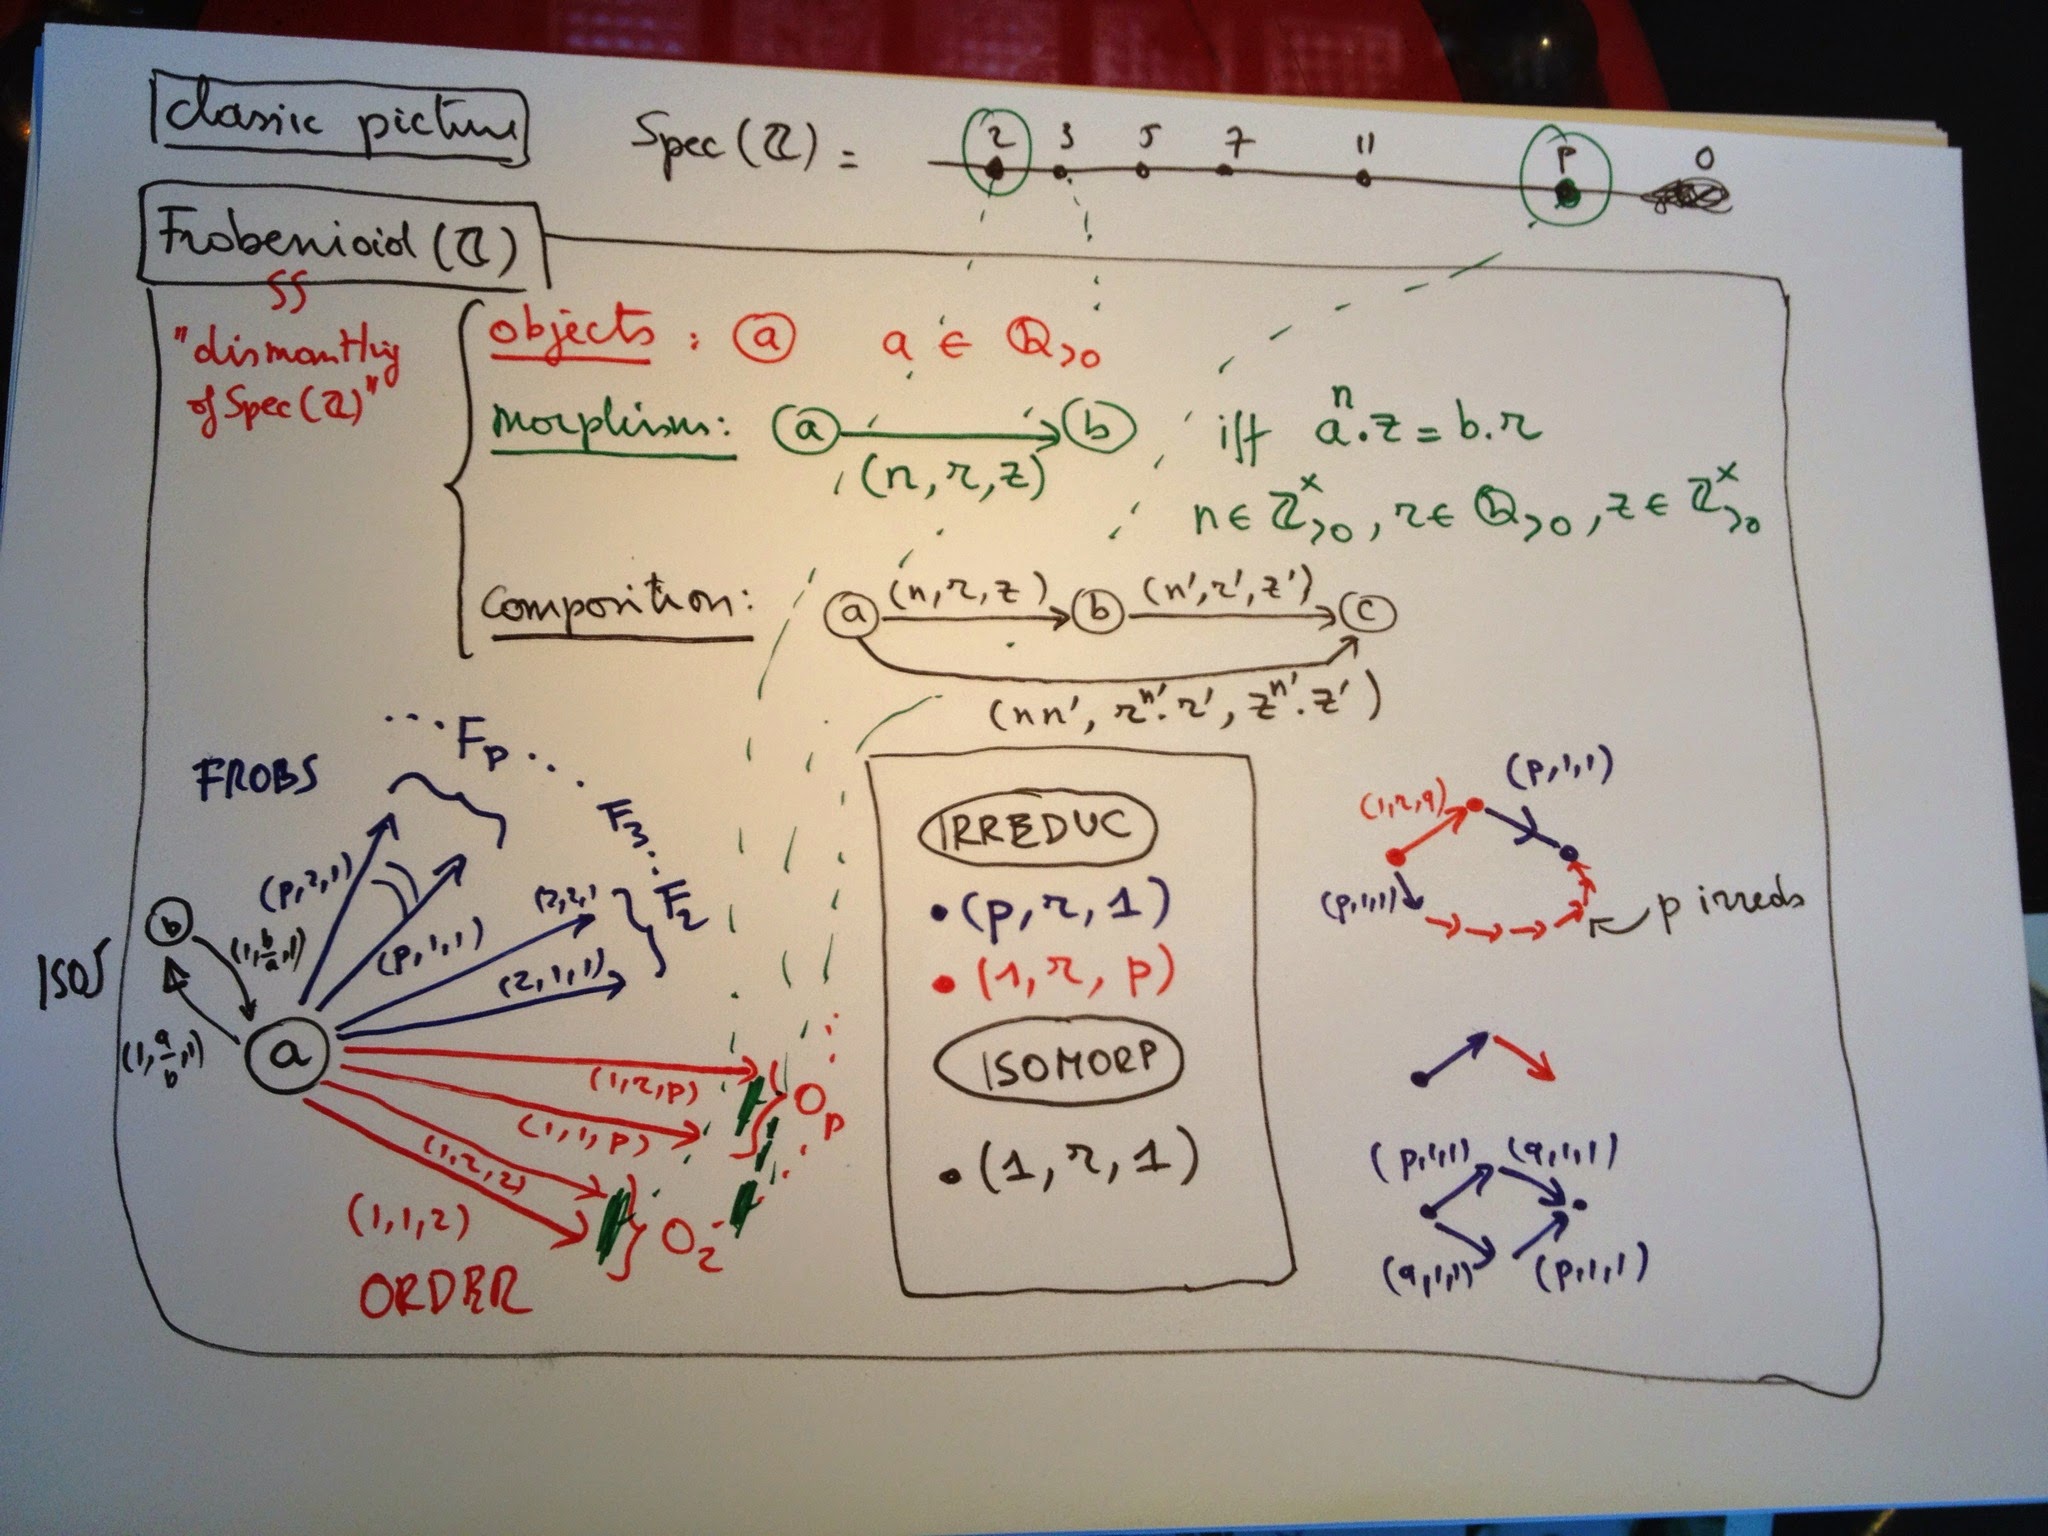 classic picture
Spec(ℤ) =
2 3 5 7 11 p 0
Frobenioid(ℤ)
"dismantling
of Spec(ℤ)"
objects : a a ∈ ℚ>0
morphisms: a b iff aⁿ.z = b.r
(n,r,z)
n ∈ ℤ>0ˣ, r ∈ ℚ>0, z ∈ ℤ>0ˣ
composition: a (n,r,z) b (n',r',z') c
(nn', rⁿ'.r', zⁿ'.z')
FROBS
... Fp ...
F3
F2
(p,r,1)
(p,1,1)
(2,r,1)
(2,1,1)
ISOS
b
(1,b/a,1)
(1,a/b,1)
a
(1,r,p)
(1,1,p)
Op
(1,r,2)
(1,1,2)
O2
ORDER
IRREDUC
• (p,r,1)
• (1,r,p)
ISOMORP
• (1,r,1)
(1,r,q)
(p,1,1)
(p,1,1)
p irreds
(p,1,1) (q,1,1)
(q,1,1) (p,1,1)